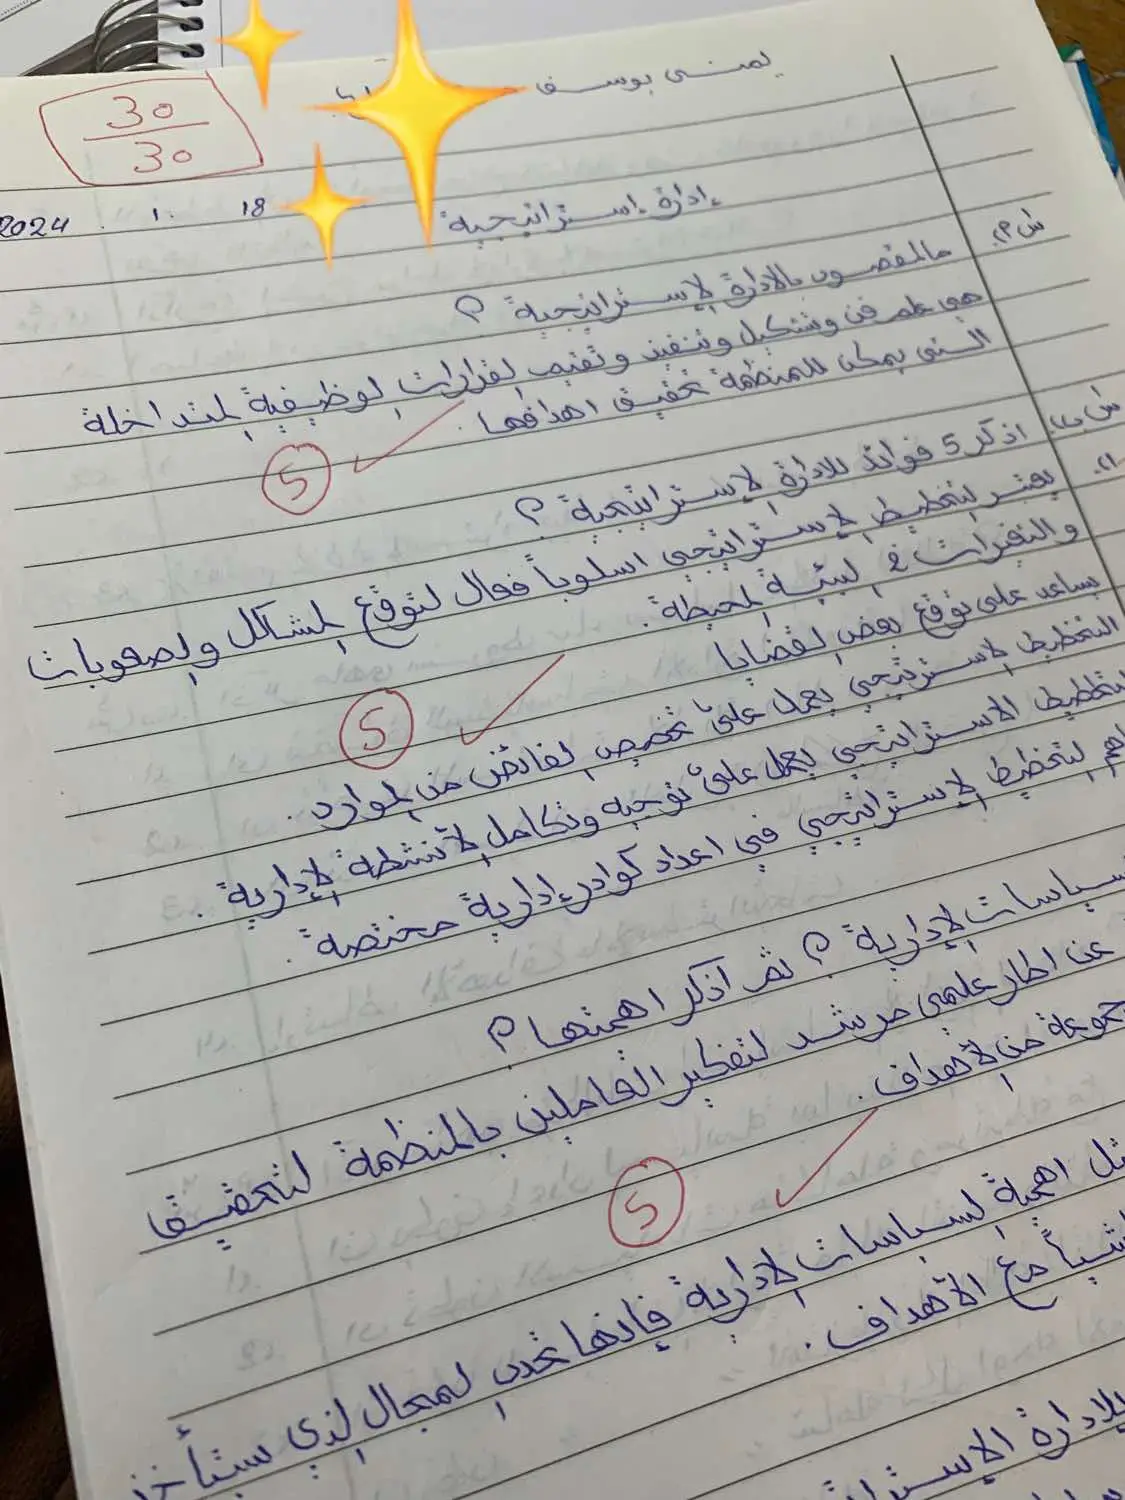 يمنى يوسف
30
30
18 . 1 . 2024
إدارة إستراتيجية
س1.
مالمقصود بالادارة الإستراتيجية ؟
هي علم فن وتشكيل وتنفيذ وتقييم القرارات الوظيفية المتداخلة
التي يمكن للمنظمة تحقيق اهدافها .
5
س2.
اذكر 5 فوائد للادارة الإستراتيجية ؟
1.
يعتبر التخطيط الإستراتيجي اسلوباً فعال لتوقع المشاكل والصعوبات
والتغيرات في البيئة المحيطة .
يساعد على توقع بعض القضايا
5
التخطيط الاستراتيجي يعمل على تخصيص الفائض من الموارد .
التخطيط الاستراتيجي يعمل على توجيه وتكامل الأنشطة الإدارية .
التخطيط الإستراتيجي في اعداد كوادر إدارية مختصة .
السياسات الإدارية ؟ ثم اذكر اهميتها ؟
عن اطار علمي مرشد لتفكير العاملين بالمنظمة لتحقيق
من الأهداف .
5
اهمية السياسات الإدارية فإنها تحدد المجال الذي ستأخذ
مع الأهداف .
للادارة